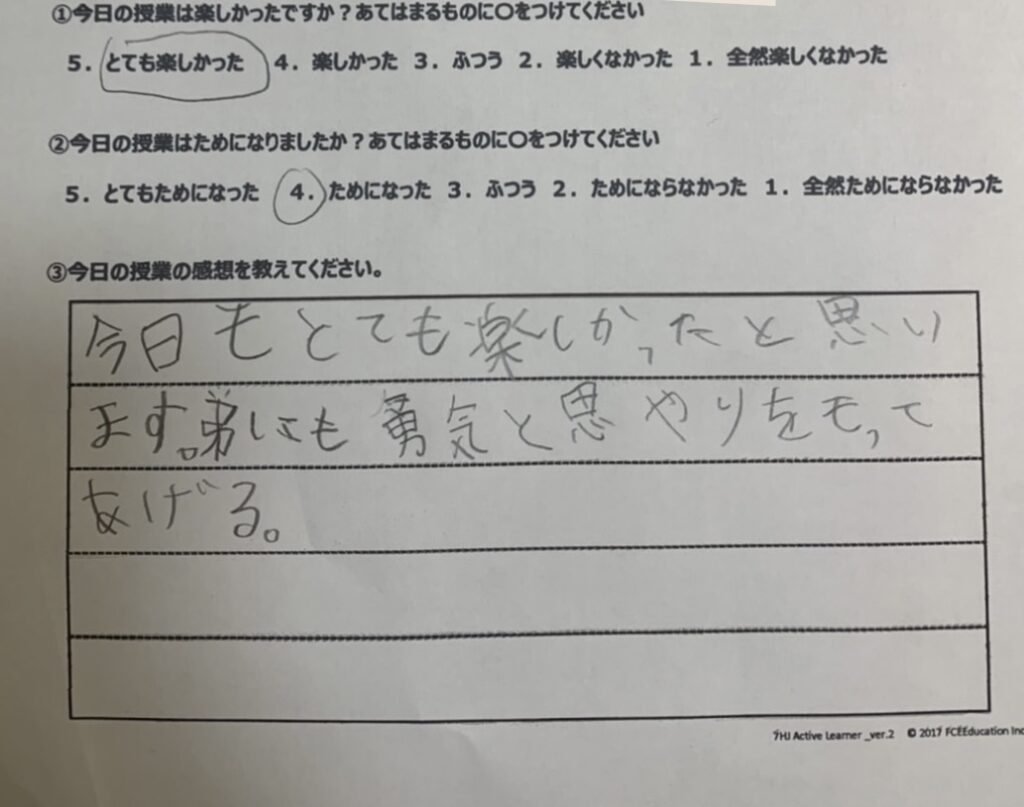 ①今日の授業は楽しかったですか？あてはまるものに〇をつけてください
5．とても楽しかった 4．楽しかった 3．ふつう 2．楽しくなかった 1．全然楽しくなかった
②今日の授業はためになりましたか？あてはまるものに〇をつけてください
5．とてもためになった 4．ためになった 3．ふつう 2．ためにならなかった 1．全然ためにならなかった
③今日の授業の感想を教えてください。
今日もとても楽しかったと思い
ます。弟にも勇気と思やりをもって
あげる。
7HJ Active Learner _ver.2 © 2017 FCEEducation Inc